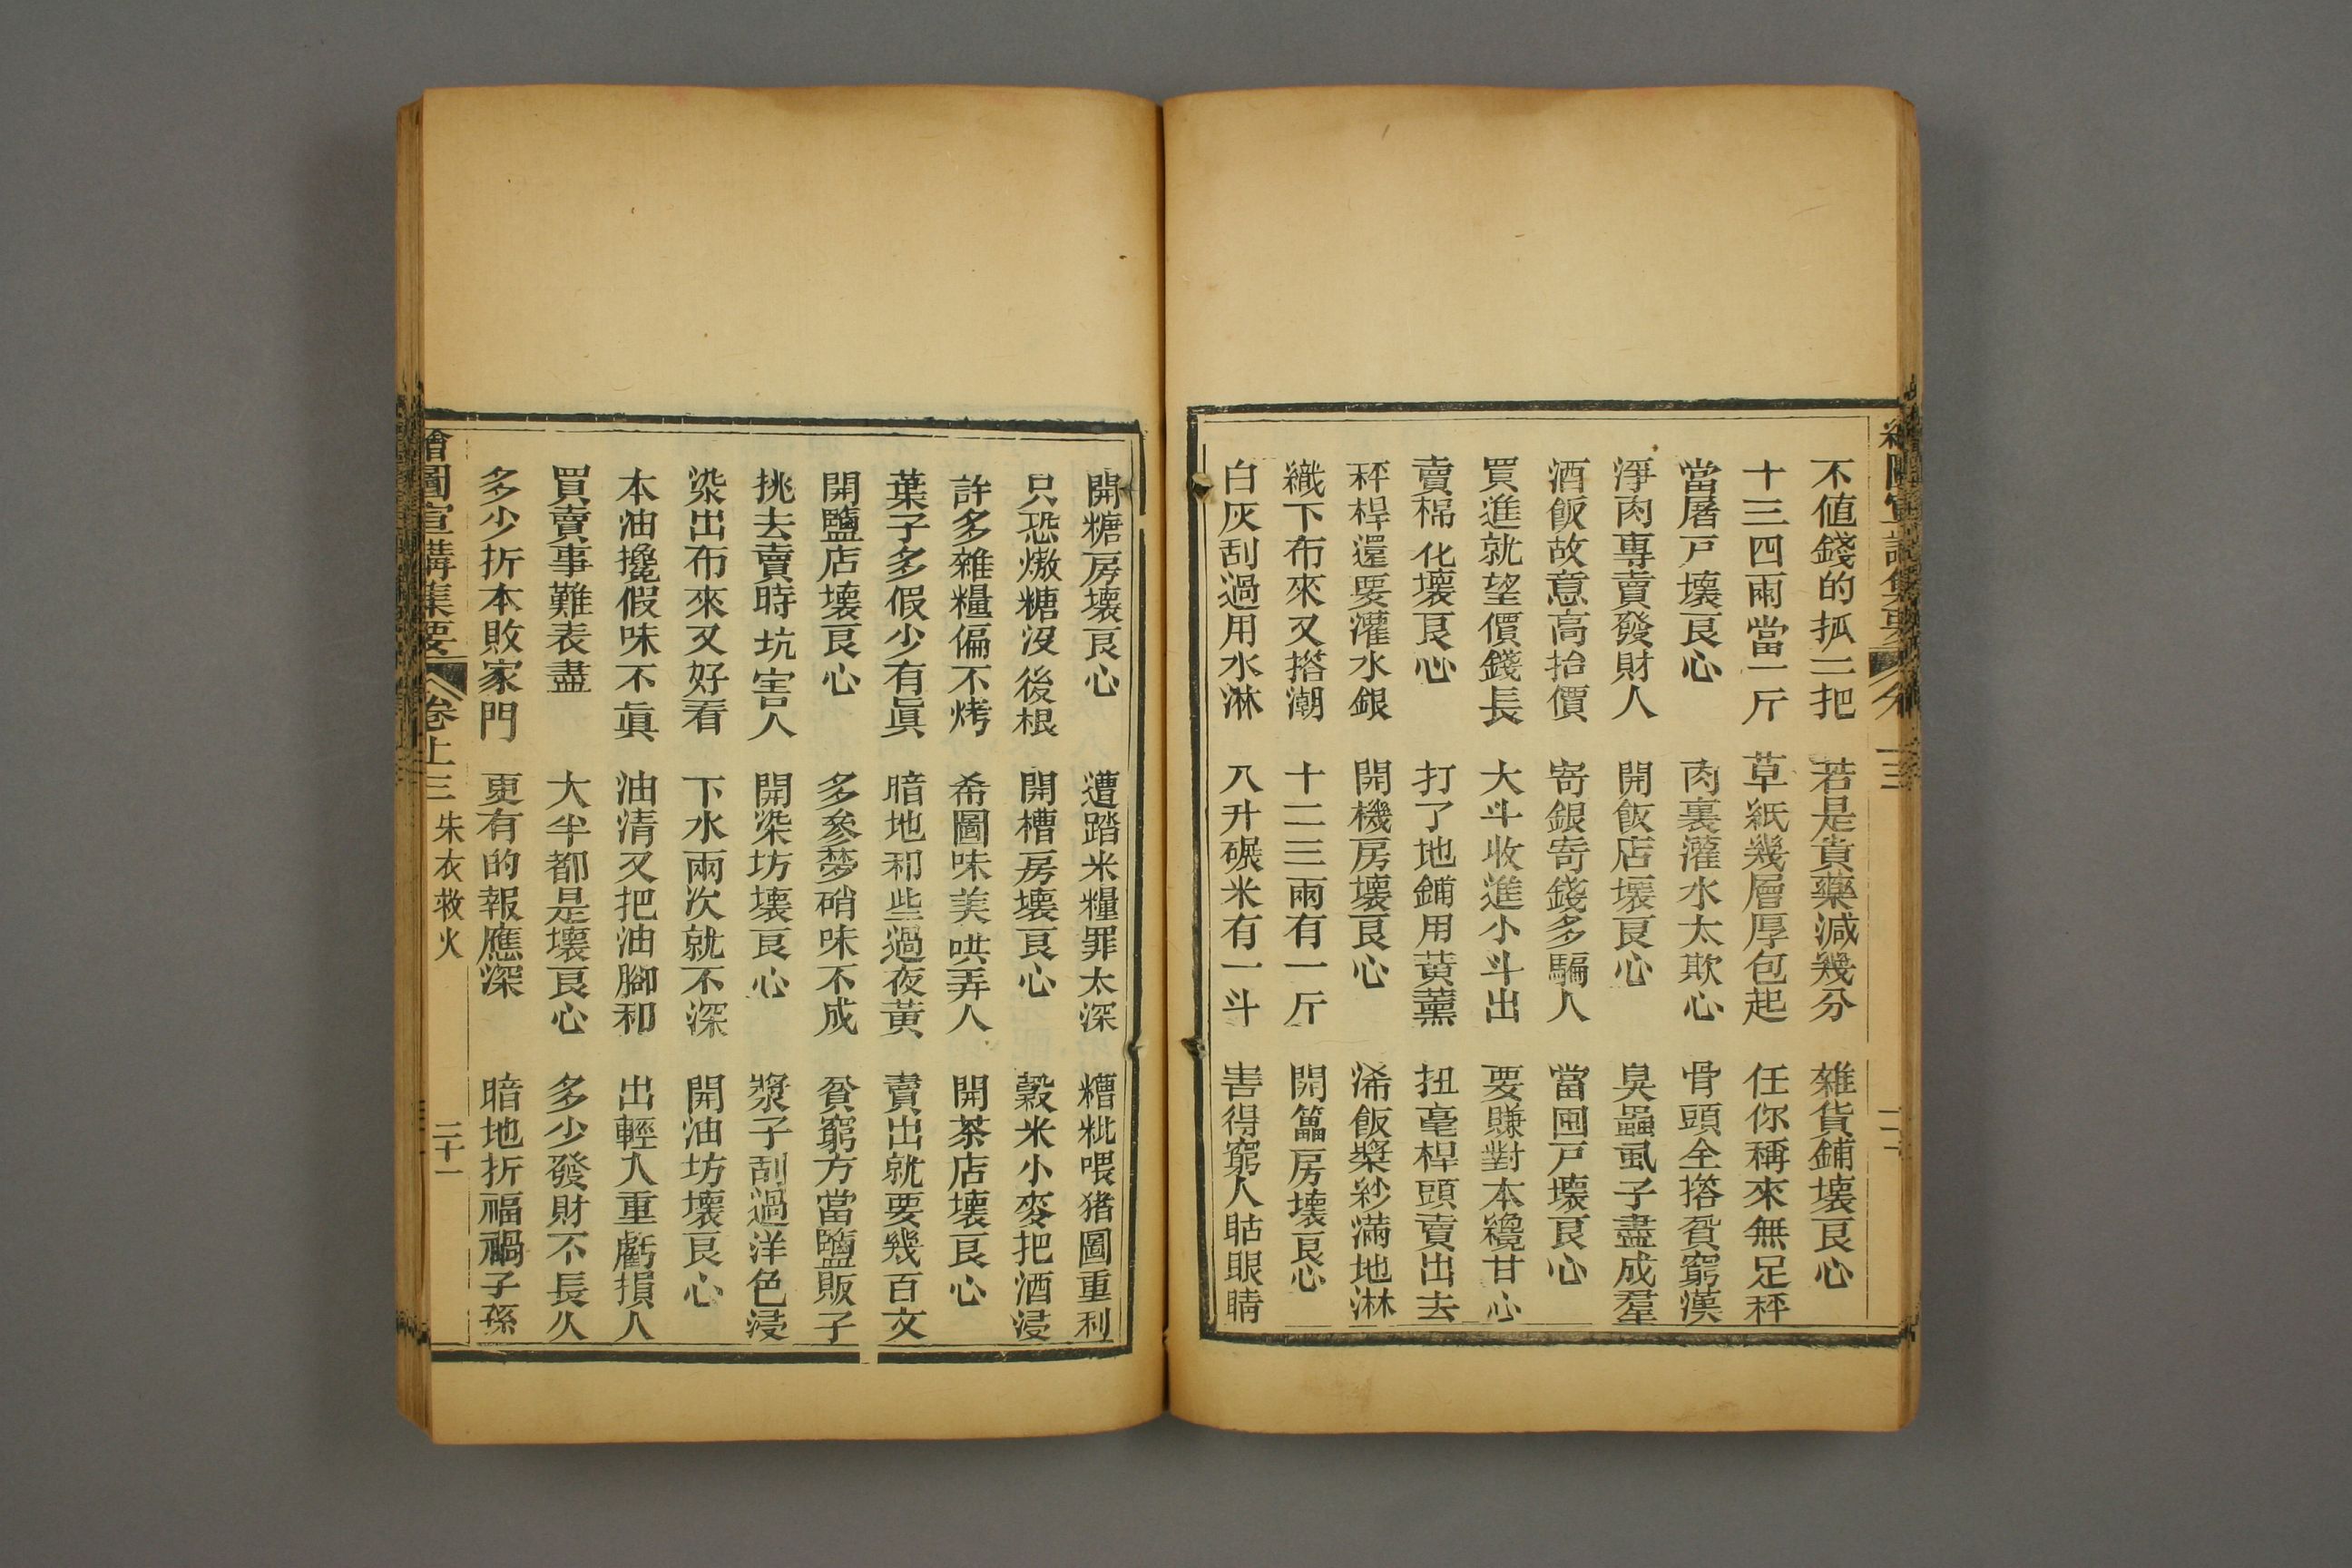 不值錢的抓一把　若是貴藥減幾分　雜貨鋪壞良心
十三四兩當一斤　草紙幾層厚包起　任你稱來無足秤
當屠戶壞良心　肉裏灌水太欺心　骨頭全搭貧窮漢
淨肉專賣發財人　開飯店壞良心　臭蟲虱子盡成羣
酒飯故意高抬價　寄銀寄錢多騙人　當囤戶壞良心
買進就望價錢長　大斗收進小斗出　要賺對本纔甘心
賣棉化壞良心　打了地鋪用黃薰　扭毫桿頭賣出去
秤桿還要灌水銀　開機房壞良心　浠飯槳紗滿地淋
織下布來又搭潮　十二三兩有一斤　開礱房壞良心
白灰刮過用水淋　八升碾米有一斗　害得窮人眙眼睛
開糖房壞良心　遭踏米糧罪太深　糟粃喂猪圖重利
只恐熬糖沒後根　開槽房壞良心　穀米小麥把酒浸
許多雜糧偏不烤　希圖味美哄弄人　開茶店壞良心
葉子多假少有眞　暗地和些過夜黃　賣出就要幾百文
開鹽店壞良心　多參夢硝味不成　貧窮方當鹽販子
挑去賣時坑害人　開染坊壞良心　漿子刮過洋色浸
染出布來又好看　下水兩次就不深　開油坊壞良心
本油攙假味不眞　油清又把油腳和　出輕入重虧損人
買賣事難表盡　大半都是壞良心　多少發財不長久
多少折本敗家門　更有的報應深　暗地折福禍子孫
繪圖宣講集要　卷上三　朱衣救火　二十一